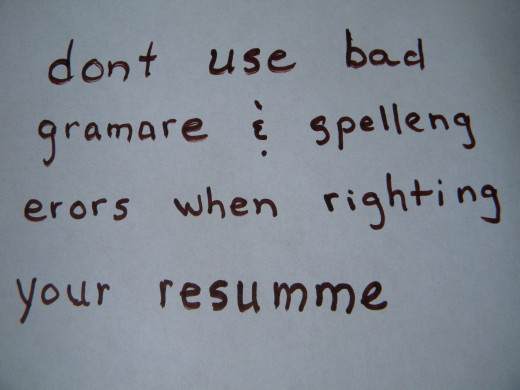 dont use bad
gramare & spelleng
erors when righting
your resumme